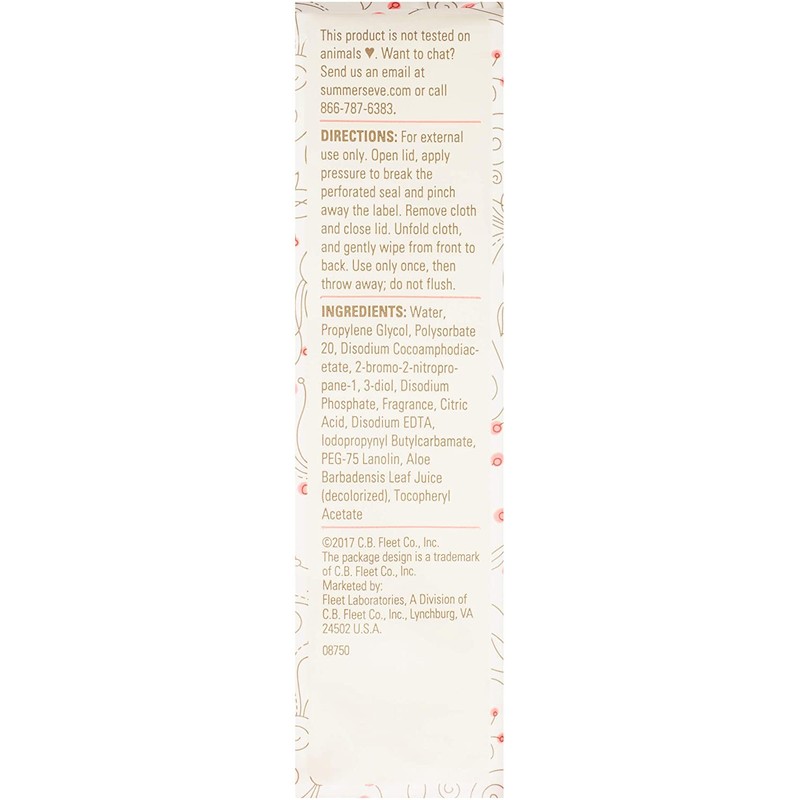 This product is not tested on
animals ♥. Want to chat?
Send us an email at
summerseve.com or call
866-787-6383.
DIRECTIONS: For external
use only. Open lid, apply
pressure to break the
perforated seal and pinch
away the label. Remove cloth
and close lid. Unfold cloth,
and gently wipe from front to
back. Use only once, then
throw away; do not flush.
INGREDIENTS: Water,
Propylene Glycol, Polysorbate
20, Disodium Cocoamphodiac-
etate, 2-bromo-2-nitropro-
pane-1, 3-diol, Disodium
Phosphate, Fragrance, Citric
Acid, Disodium EDTA,
Iodopropynyl Butylcarbamate,
PEG-75 Lanolin, Aloe
Barbadensis Leaf Juice
(decolorized), Tocopheryl
Acetate
©2017 C.B. Fleet Co., Inc.
The package design is a trademark
of C.B. Fleet Co., Inc.
Marketed by:
Fleet Laboratories, A Division of
C.B. Fleet Co., Inc., Lynchburg, VA
24502 U.S.A.
08750